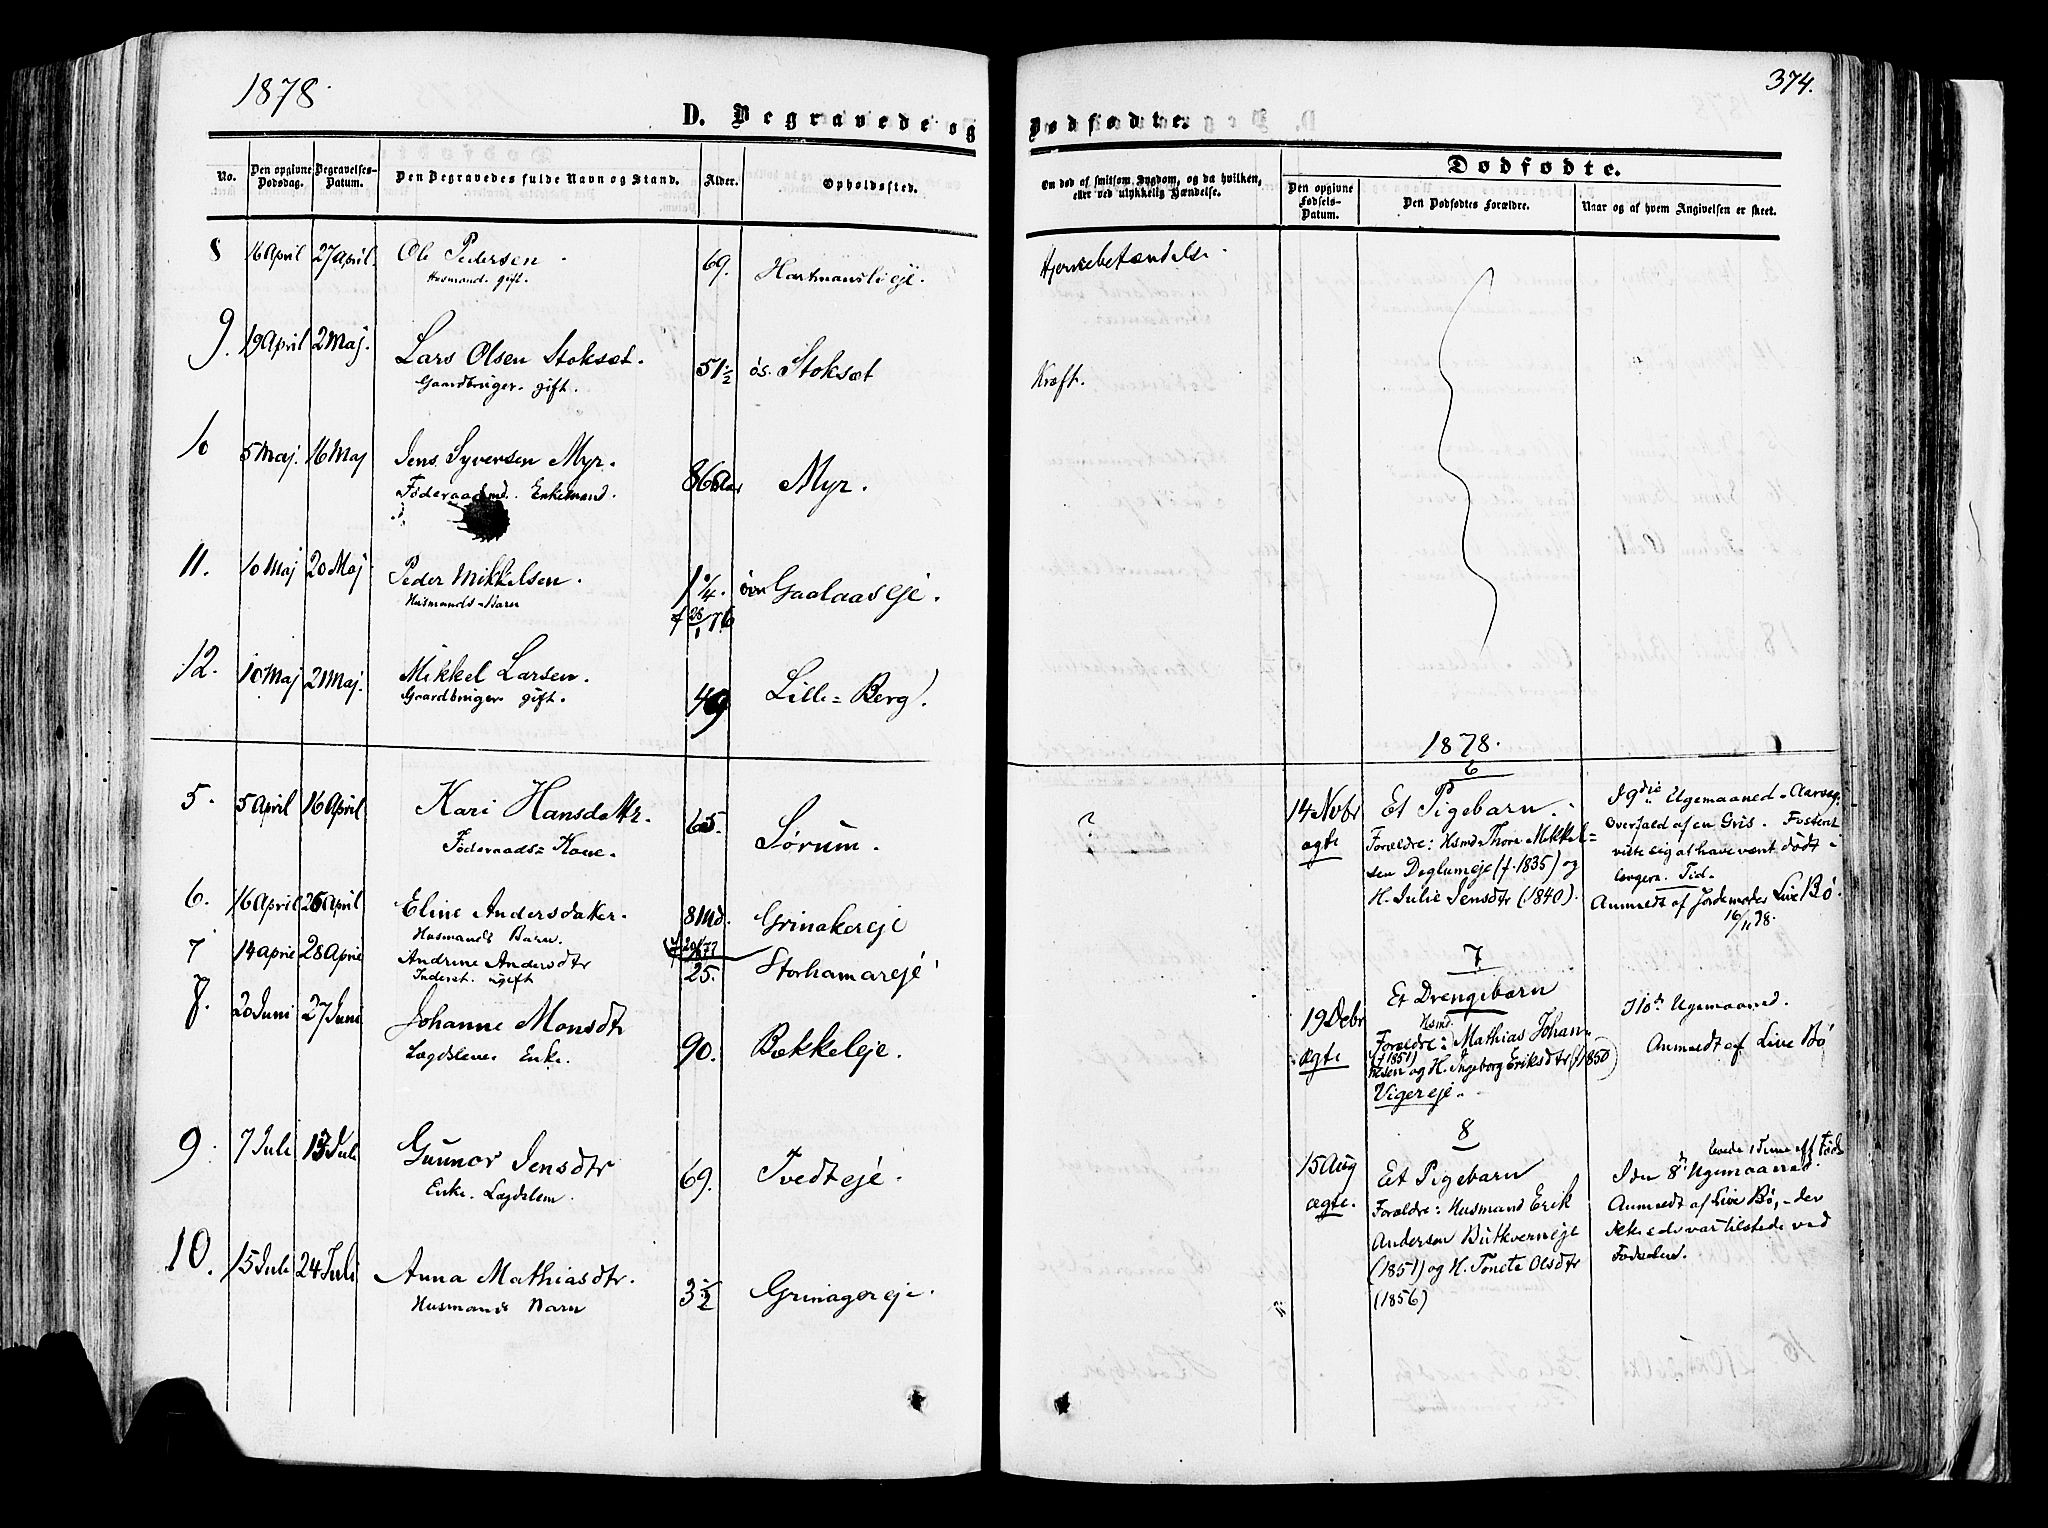 1878.
D. Begravede og
No.
Den opgivne Dødsdag.
Begravelses-Datum.
Den Begravedes fulde Navn og Stand.
Alder.
Opholdssted.
8 16 April 27 April. Ole Pedersen 69. Hartmanslieje.
Husmand. gift.
9. 19 April 2 Maj. Lars Olsen Stoksæt. 51 1/2 øs. Stoksæt
Gaardbruger. gift.
10 5 Maj. 16 Maj Jens Syversen Myr. 86 Aar Myr.
Føderaadsmd. Enkemand.
11. 10 Maj 20 Maj Peder Mikkelsen. 1 1/4. øvr Gaalaaseje.
Husmands-Barn
f 28/1 76
12. 10 Maj 21 Maj. Mikkel Larsen. 49 Lille-Berg.
Gaardbruger gift.
5. 5 April 16 April Kari Hansdatter. 65. Sørum.
Føderaads-Kone.
6. 16 April 26 April Eline Andersdatter. 8 Md. Grinakereje
Husmands Barn.
7 14 April 28 April Andrine Andersdtr 25. Storhamareje
Inderst. ugift
8. 20 Juni 27 Juni Johanne Monsdtr 90. Bækkeleje.
Lægdslem Enke.
9. 7 Juli 13 Juli Gunnor Jensdtr 69. Tvedteje.
Enke. Lægdslem.
10. 15 Juli 24 Juli Anna Mathiasdtr. 3 1/2 Grinagereje.
Husmands Barn
374.
Dødfødte.
Om død af smitsom Sygdom, og da hvilken,
eller ved ulykkelig Hændelse.
Dødfødte.
Den opgivne Fødsels-Datum.
Den Dødfødtes Forældre.
Naar og af hvem Angivelsen er skeet.
Hjernebetændelse.
Kræft.
1878.
6
14 Novbr Et Pigebarn.
ægte
Forældre: Husmd. Thore Mikkel-
sen Deglumeje (f. 1835) og
H. Julie Jensdtr (1840).
I 9die Ugemaaned - Aarsag
Overfald af en Gris. Fosteret
viste sig at have vært dødt
længere Tid.
Anmeldt af Jordemoder Live Bø
16/11 78.
?
7.
19 Debr Et Drengebarn
ægte
Husmd.
Forældre: Mathias Johan-
(f 1851)
nesen og H. Ingeborg Eriksdtr (1850)
Vigereje.
I 10de Ugemaaned.
Anmeldt af Live Bø
8
15 Aug Et Pigebarn
ægte.
Forældre: Husmand Erik
Andersen
(1851) og H. Tonete Olsdtr
(1856)
levede 1 Time eft Føds
I den 8de Ugemaaned.
Anmeldt af Live Bø, - der
ikke selv var tilstede ved
Fødselen.